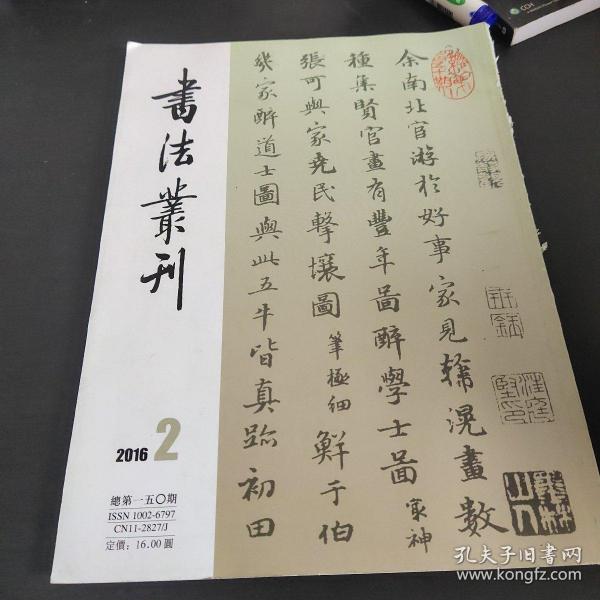 書法叢刊
2016 2
總第一五〇期
ISSN 1002-6797
CN11-2827/J
定價：16.00圓
余南北官游於好事家見韓滉畫數
種集賢官畫有豐年啚醉學士啚最神
張可與家堯民擊壤圖筆極細鮮于伯
幾家醉道士圖與此五牛皆真跡初田
CCH
孔夫子旧书网
www.kongfz.com